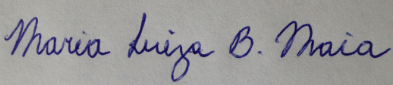 Maria Luiza B. Maia